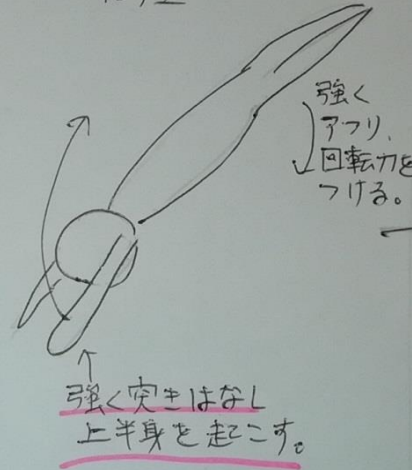 強く
アフリ、
回転力を
つける。
強く突きはなし
上半身を起こす。